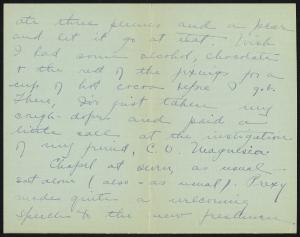 ate three prunes and a pear
and let it go at that. Wish
I had some alcohol, chocolate
& the rest of the fixings for a
cup of hot cocoa before I go b.
There, I've just taken my
cough-dopes and paid a
little call at the instigation
of my friend, C. O. Magnesia.
Chapel at seven, as usual
sat alone (also - as usual). Prexy
made quite a welcoming
speech to the new freshmen